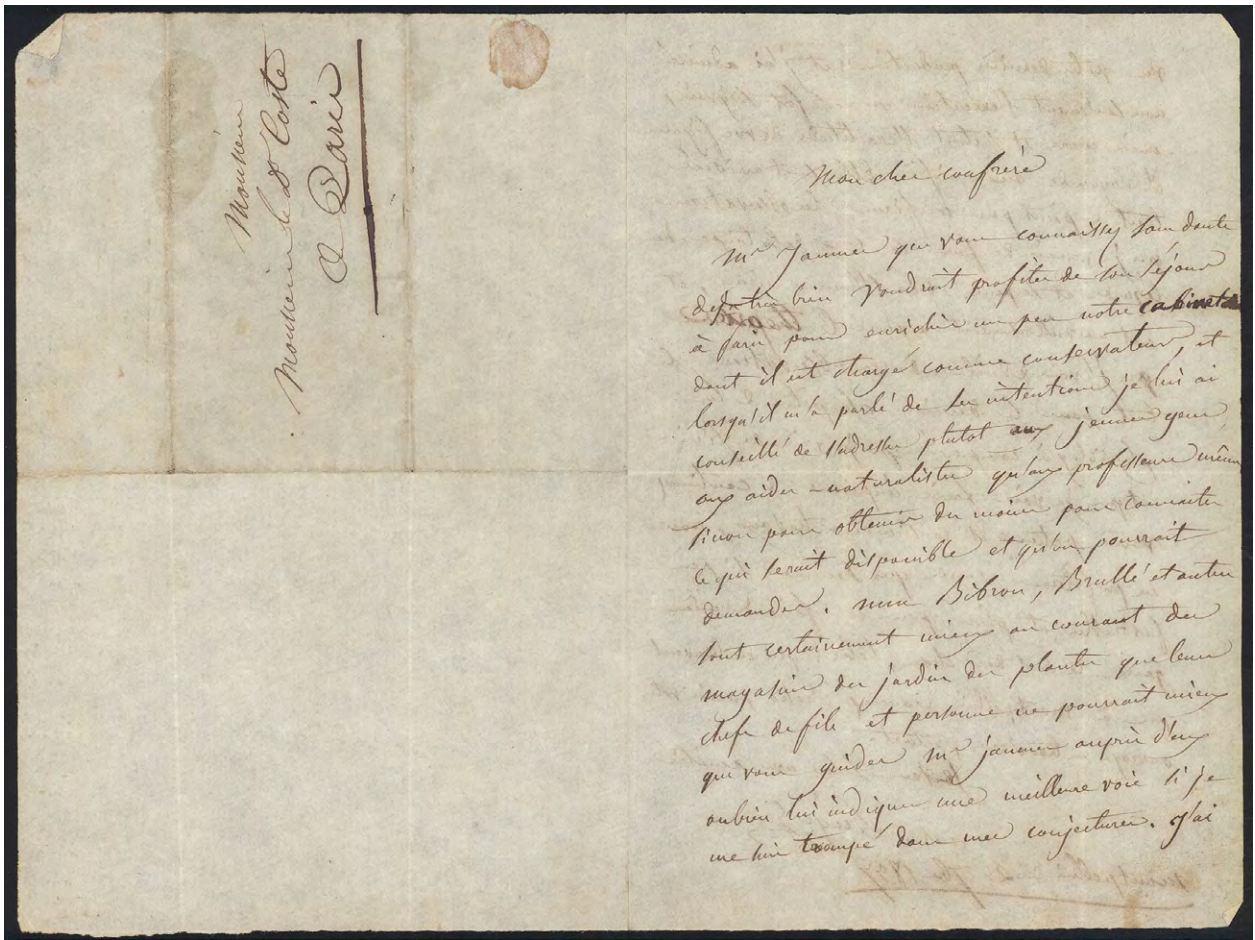 Monsieur
Monsieur le Dr Coste
A Paris
Mon cher confrère
Mr Jaumes que vous connaissez sans doute
déjà très bien voudrait profiter de son séjour
à Paris pour enrichir un peu notre cabinet
dont il est chargé comme conservateur, et
lorsqu'il m'a parlé de ses intentions je lui ai
conseillé de s'adresser plutot aux jeunes gens,
aux aides-naturalistes qu'aux professeurs même
sinon pour obtenir du moins pour connaitre
ce qui serait disponible et qu'on pourrait
demander. mrs Bibron, Brullé et autres
sont certainement mieux au courant des
magasins du jardin des plantes que leurs
chefs de file et personne ne pourrait mieux
que vous guider Mr jaumes auprès d'eux
oubien lui indiquer une meilleure voie si je
me suis trompé dans mes conjectures. j'ai